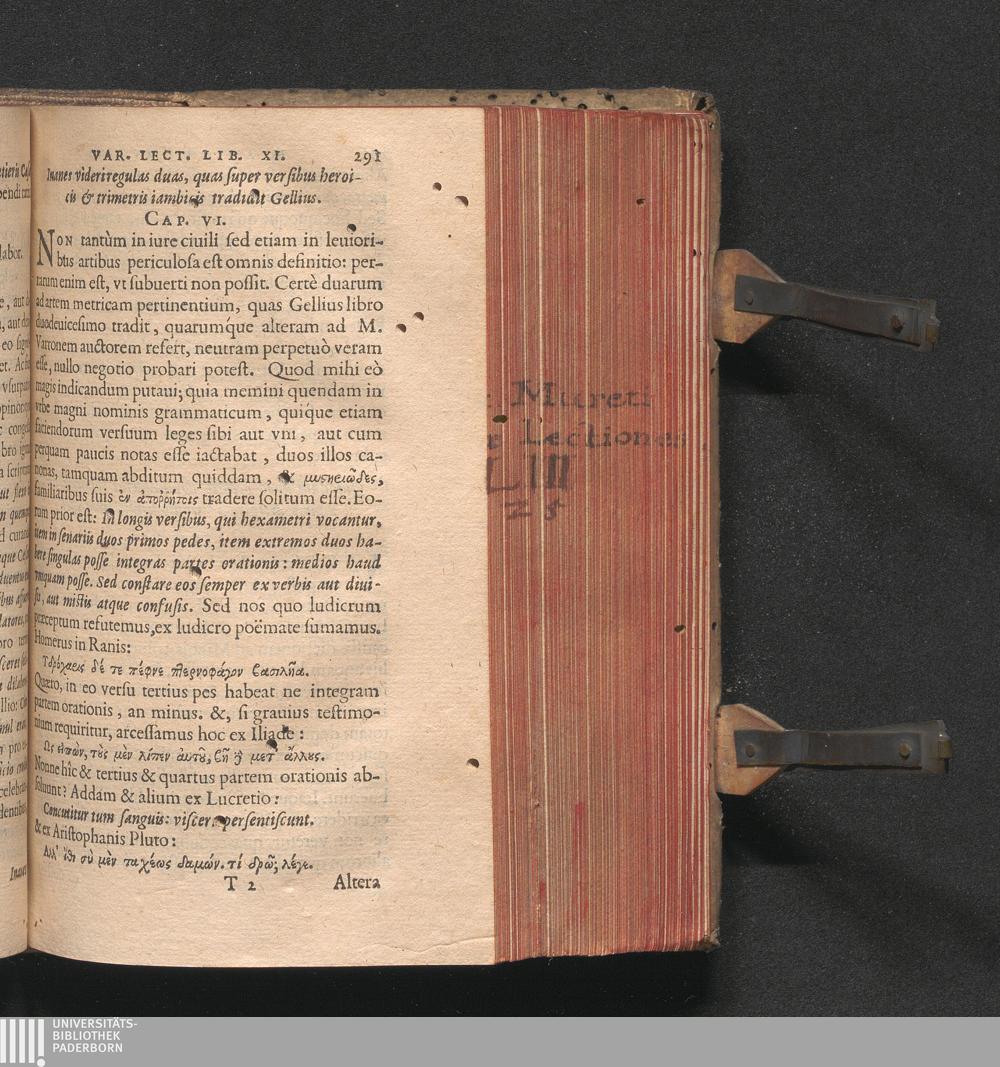 VAR. LECT. LIB. XI. 291
Inanes videri regulas duas, quas super versibus heroi-
cis & trimetris iambicis tradidit Gellius.
CAP. VI.
NON tantùm in iure ciuili sed etiam in leuiori-
bus artibus periculosa est omnis definitio: per-
rarum enim est, vt subuerti non possit. Certè duarum
ad artem metricam pertinentium, quas Gellius libro
duodeuicesimo tradit, quarumq́ue alteram ad M.
Varronem auctorem refert, neutram perpetuò veram
esse, nullo negotio probari potest. Quod mihi eò
magis indicandum putaui; quia memini quendam in
vrbe magni nominis grammaticum, quiq́ue etiam
faciendorum versuum leges sibi aut vni, aut cum
perquam paucis notas esse iactabat, duos illos ca-
nonas, tamquam abditum quiddam, & μυστηειῶδες,
familiaribus suis ἐν ἀποῤῥήτοις tradere solitum esse. Eo-
rum prior est: In longis versibus, qui hexametri vocantur,
item in senariis duos primos pedes, item extremos duos ha-
bere singulas posse integras partes orationis: medios haud
vmquam posse. Sed constare eos semper ex verbis aut diui-
sis, aut mistis atque confusis. Sed nos quo ludicrum
præceptum refutemus, ex ludicro poëmate sumamus.
Homerus in Ranis:
Ὑδρόχαεις δέ τε πέφνε πτερνοφάγον βασιλῆα.
Quæro, in eo versu tertius pes habeat ne integram
partem orationis, an minus. &, si grauius testimo-
nium requiritur, arcessamus hoc ex Iliade:
Ως εἰπὼν, τὸς μὲν λίπεν ἀυτοῦ, βῆ ἢ μετ' ἄλλυς.
Nonne hîc & tertius & quartus partem orationis ab-
soluunt? Addam & alium ex Lucretio:
Concutitur tum sanguis: viscera persentiscunt.
& ex Aristophanis Pluto:
Αλλ' ἴθι σὺ μὲν ταχέως δραμών. τί δρῶ; λέγε.
T 2 Altera
Mureti
Lectiones
LIII
25
UNIVERSITÄTS-
BIBLIOTHEK
PADERBORN